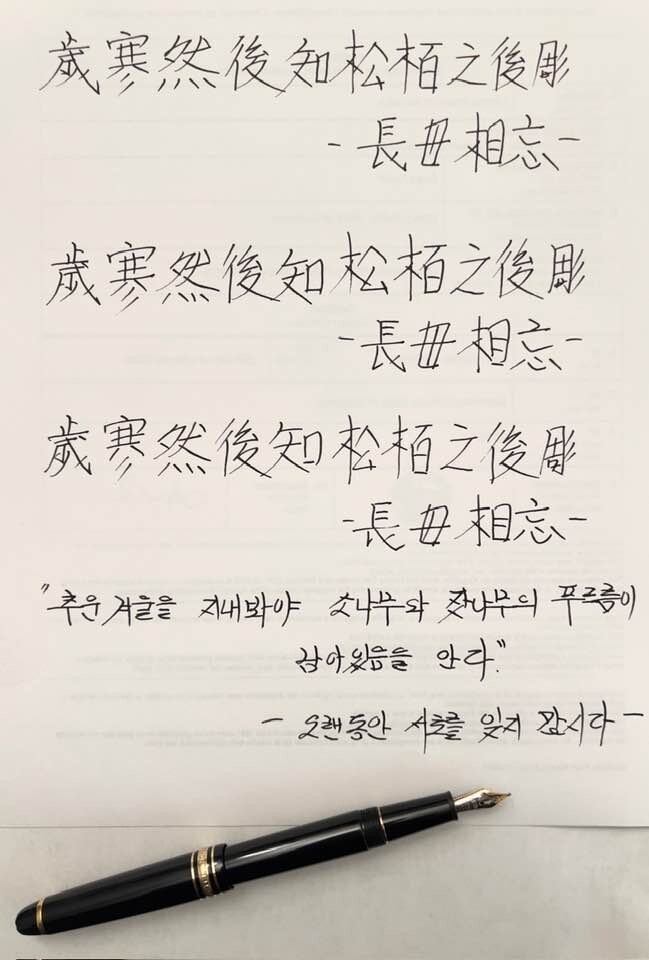 歲寒然後知松栢之後彫
-長毋相忘-
歲寒然後知松栢之後彫
-長毋相忘-
歲寒然後知松栢之後彫
-長毋相忘-
"추운겨울을 지내봐야 소나무와 잣나무의 푸르름이
남아있음을 안다."
- 오랜동안 서로를 잊지 맙시다 -